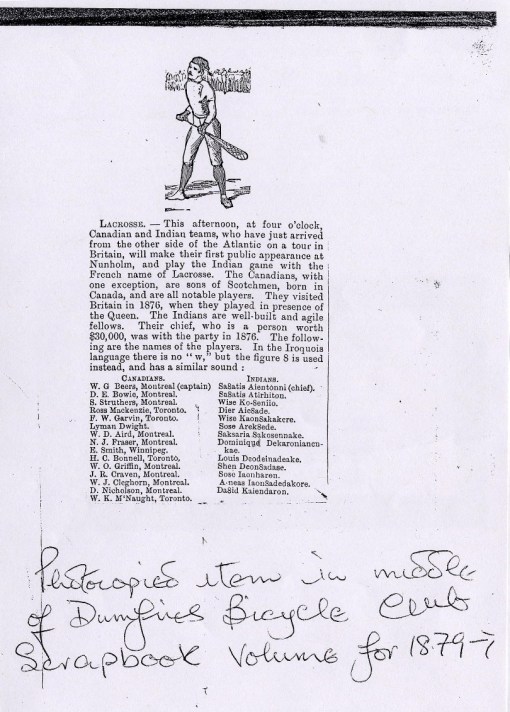 LACROSSE. — This afternoon, at four o'clock,
Canadian and Indian teams, who have just arrived
from the other side of the Atlantic on a tour in
Britain, will make their first public appearance at
Nunholm, and play the Indian game with the
French name of Lacrosse. The Canadians, with
one exception, are sons of Scotchmen, born in
Canada, and are all notable players. They visited
Britain in 1876, when they played in presence of
the Queen. The Indians are well-built and agile
fellows. Their chief, who is a person worth
$30,000, was with the party in 1876. The follow-
ing are the names of the players. In the Iroquois
language there is no "w," but the figure 8 is used
instead, and has a similar sound :
CANADIANS.
W. G Beers, Montreal (captain)
D. E. Bowie, Montreal.
S. Struthers, Montreal.
Ross Mackenzie, Toronto.
F. W. Garvin, Toronto.
Lyman Dwight.
W. D. Aird, Montreal.
N. J. Fraser, Montreal.
E. Smith, Winnipeg.
H. C. Bonnell, Toronto.
W. O. Griffin, Montreal.
J. R. Craven, Montreal.
W. J. Cleghorn, Montreal.
D. Nicholson, Montreal.
W. K. M'Naught, Toronto.
INDIANS.
Sa8atis Aientonni (chief).
Sa8atis Atirhiton.
Wise Ko-Seniio.
Dier Aic8ade.
Wise Kaon8akakere.
Sose Arek8ede.
Saksaria Sakosennake.
Dominique Dekaroniancu-
kae.
Louis Deodeinadeake.
Shen Deon8adase.
Sose Iaonharen.
Aneas Iaon8adedakore.
Da8id Kaiendaron.
Photocopied item in middle
of Dumfries Bicycle Club
Scrapbook Volume for 1879-7